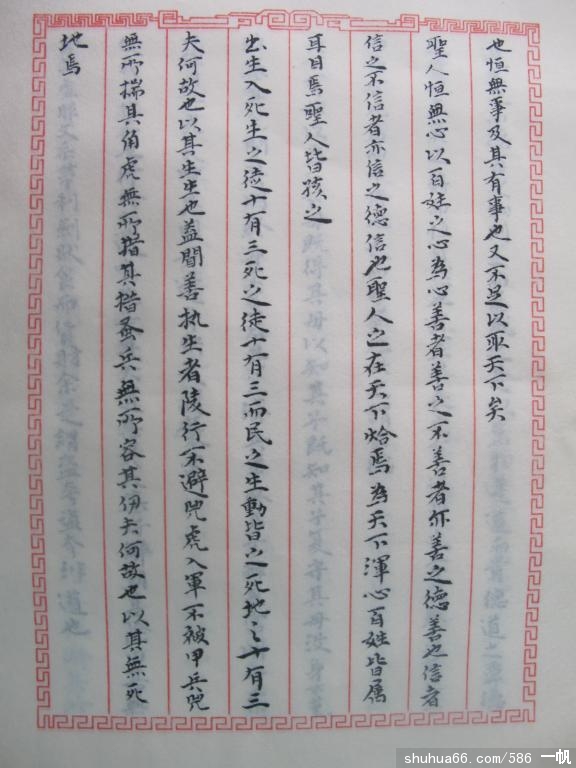 也恒無事及其有事也又不足以取天下矣
聖人恒無心以百姓之心為心善者善之不善者亦善之德善也信者
信之不信者亦信之德信也聖人之在天下歙焉為天下渾心百姓皆属
耳目焉聖人皆孩之
出生入死生之徒十有三死之徒十有三而民之生動皆之死地之十有三
夫何故也以其生生也盖聞善执生者陵行不避兕虎入軍不被甲兵兕
無所揣其角虎無所措其措蚤兵無所容其伊夫何故也以其無死
地焉
shuhua66.com/586 一帆